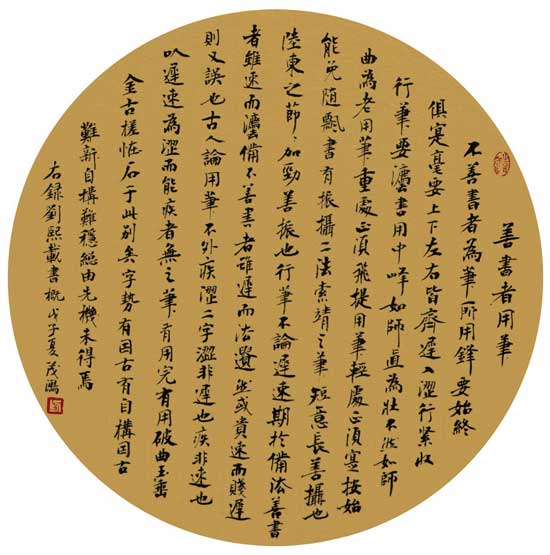 善書者用筆
不善書者為筆所用鋒要始終
俱寔毫要上下左右皆齊遲入澀行緊收
行筆要灋書用中峰如師直為壯不然如師
曲為老用筆重處正須飛提用筆輕處正須寔按始
能免随飄書有振攝二法索靖之筆短意長善攝也
陸東之節、加勁善振也行筆不論遲速期於備法善書
者雖速而灋備不善書者雖遲而法遺然或貴速而賤遲
則又誤也古人論用筆不外疾澀二字澀非遲也疾非速也
以遲速為澀而能疾者無之筆有用完有用破曲玉垂
金古槎怪石于此別矣字勢有因古有自構因古
難新自構難穩總由先機未得焉
右錄劉熙載書概戊子夏茂鴻